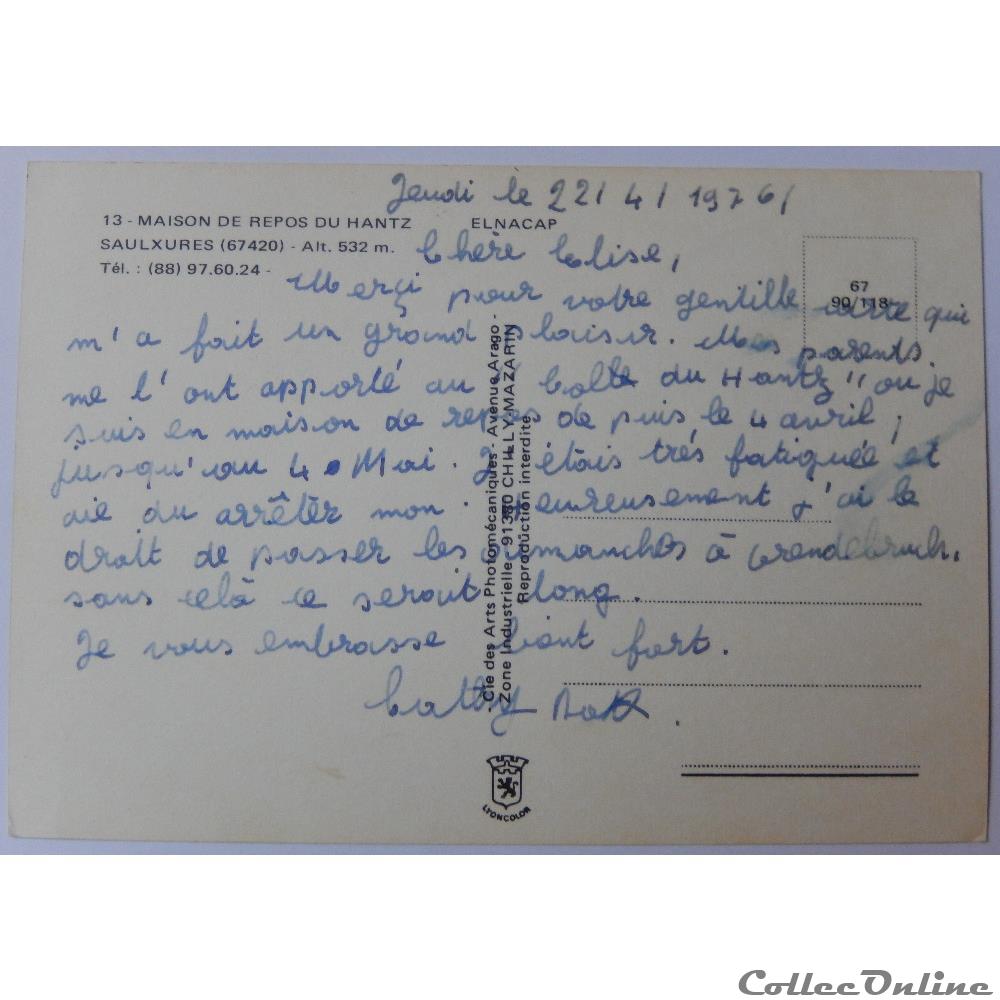 Jeudi le 22/4/1976/
13 - MAISON DE REPOS DU HANTZ ELNACAP
SAULXURES (67420) - Alt. 532 m.
Tél. : (88) 97.60.24 -
67
90/118
Chère Elise,
Merçi pour votre gentille carte qui
m'a fait un grand plaisir. Mes parents.
me l'ont apporté au "Colle du Hantz" ou je
suis en maison de repos de puis le 4 avril,
jusqu'au 4 Mai. J'étais trés fatiguée et
aie du arrêter mon. Heureusement j'ai le
droit de passer les dimanches à Grendelbruch.
sans celà ce serait long.
Je vous embrasse bient fort.
Cathy
Cie des Arts Photomécaniques - Avenue Arago -
Zone Industrielle - 91380 CHILLY-MAZARIN
Reproduction interdite
LYONCOLOR
CollecOnline